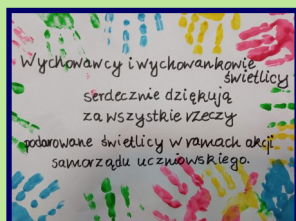 Wychowawcy i wychowankowie
świetlicy
serdecznie dziękują
za wszystkie rzeczy
podarowane świetlicy w ramach akcji
samorządu uczniowskiego.